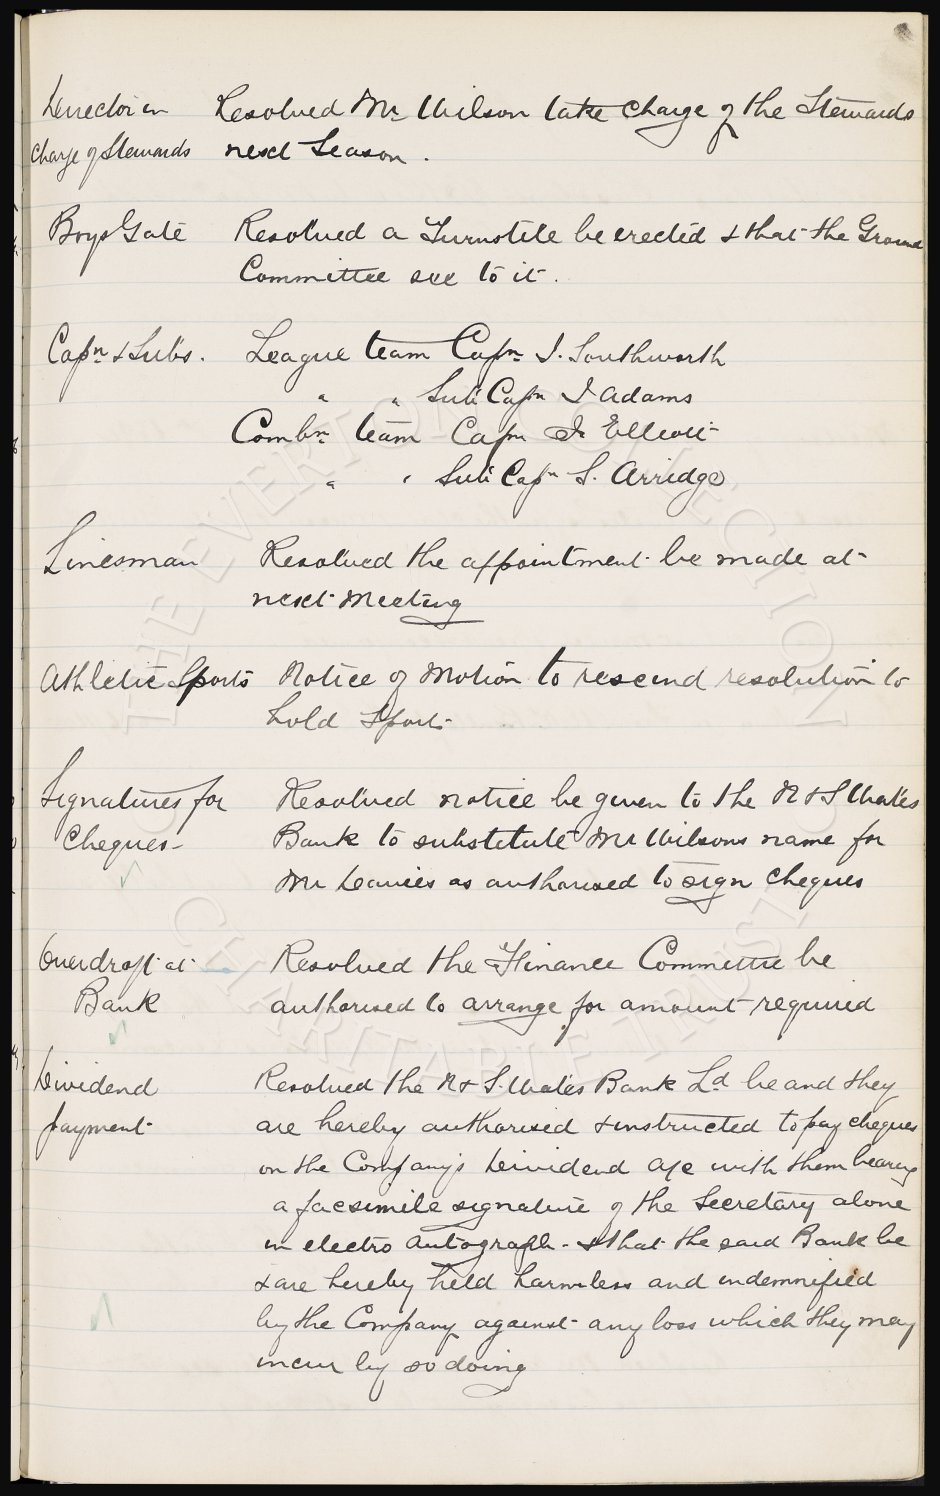 Director in
charge of Stewards
Resolved Mr Wilson take charge of the Stewards
next Season.
Boys Gate
Resolved a Turnstile be erected & that the Ground
Committee see to it.
Capn & Subs.
League team Capn J. Southworth
" " Sub Capn J Adams
Combn team Capn J. Elliott
" " Sub Capn S. Arridge
Linesman
Resolved the appointment be made at
next Meeting
Athletic Sports
Notice of Motion to rescind resolution to
hold Sports
Signatures for
Cheques
Resolved notice be given to the N & S Wales
Bank to substitute Mr Wilsons name for
Mr Davies as authorised to sign cheques
Overdraft at
Bank
Resolved the Finance Committee be
authorised to arrange for amount required
Dividend
payment
Resolved the N & S. Wales Bank Ld be and they
are hereby authorised & instructed to pay cheques
on the Company's Dividend a/c with them bearing
a facsimile signature of the Secretary alone
in electro autograph - & that the said Bank be
& are hereby held harmless and indemnified
by the Company against any loss which they may
incur by so doing
THE EVERTON COLLECTION
CHARITABLE TRUST